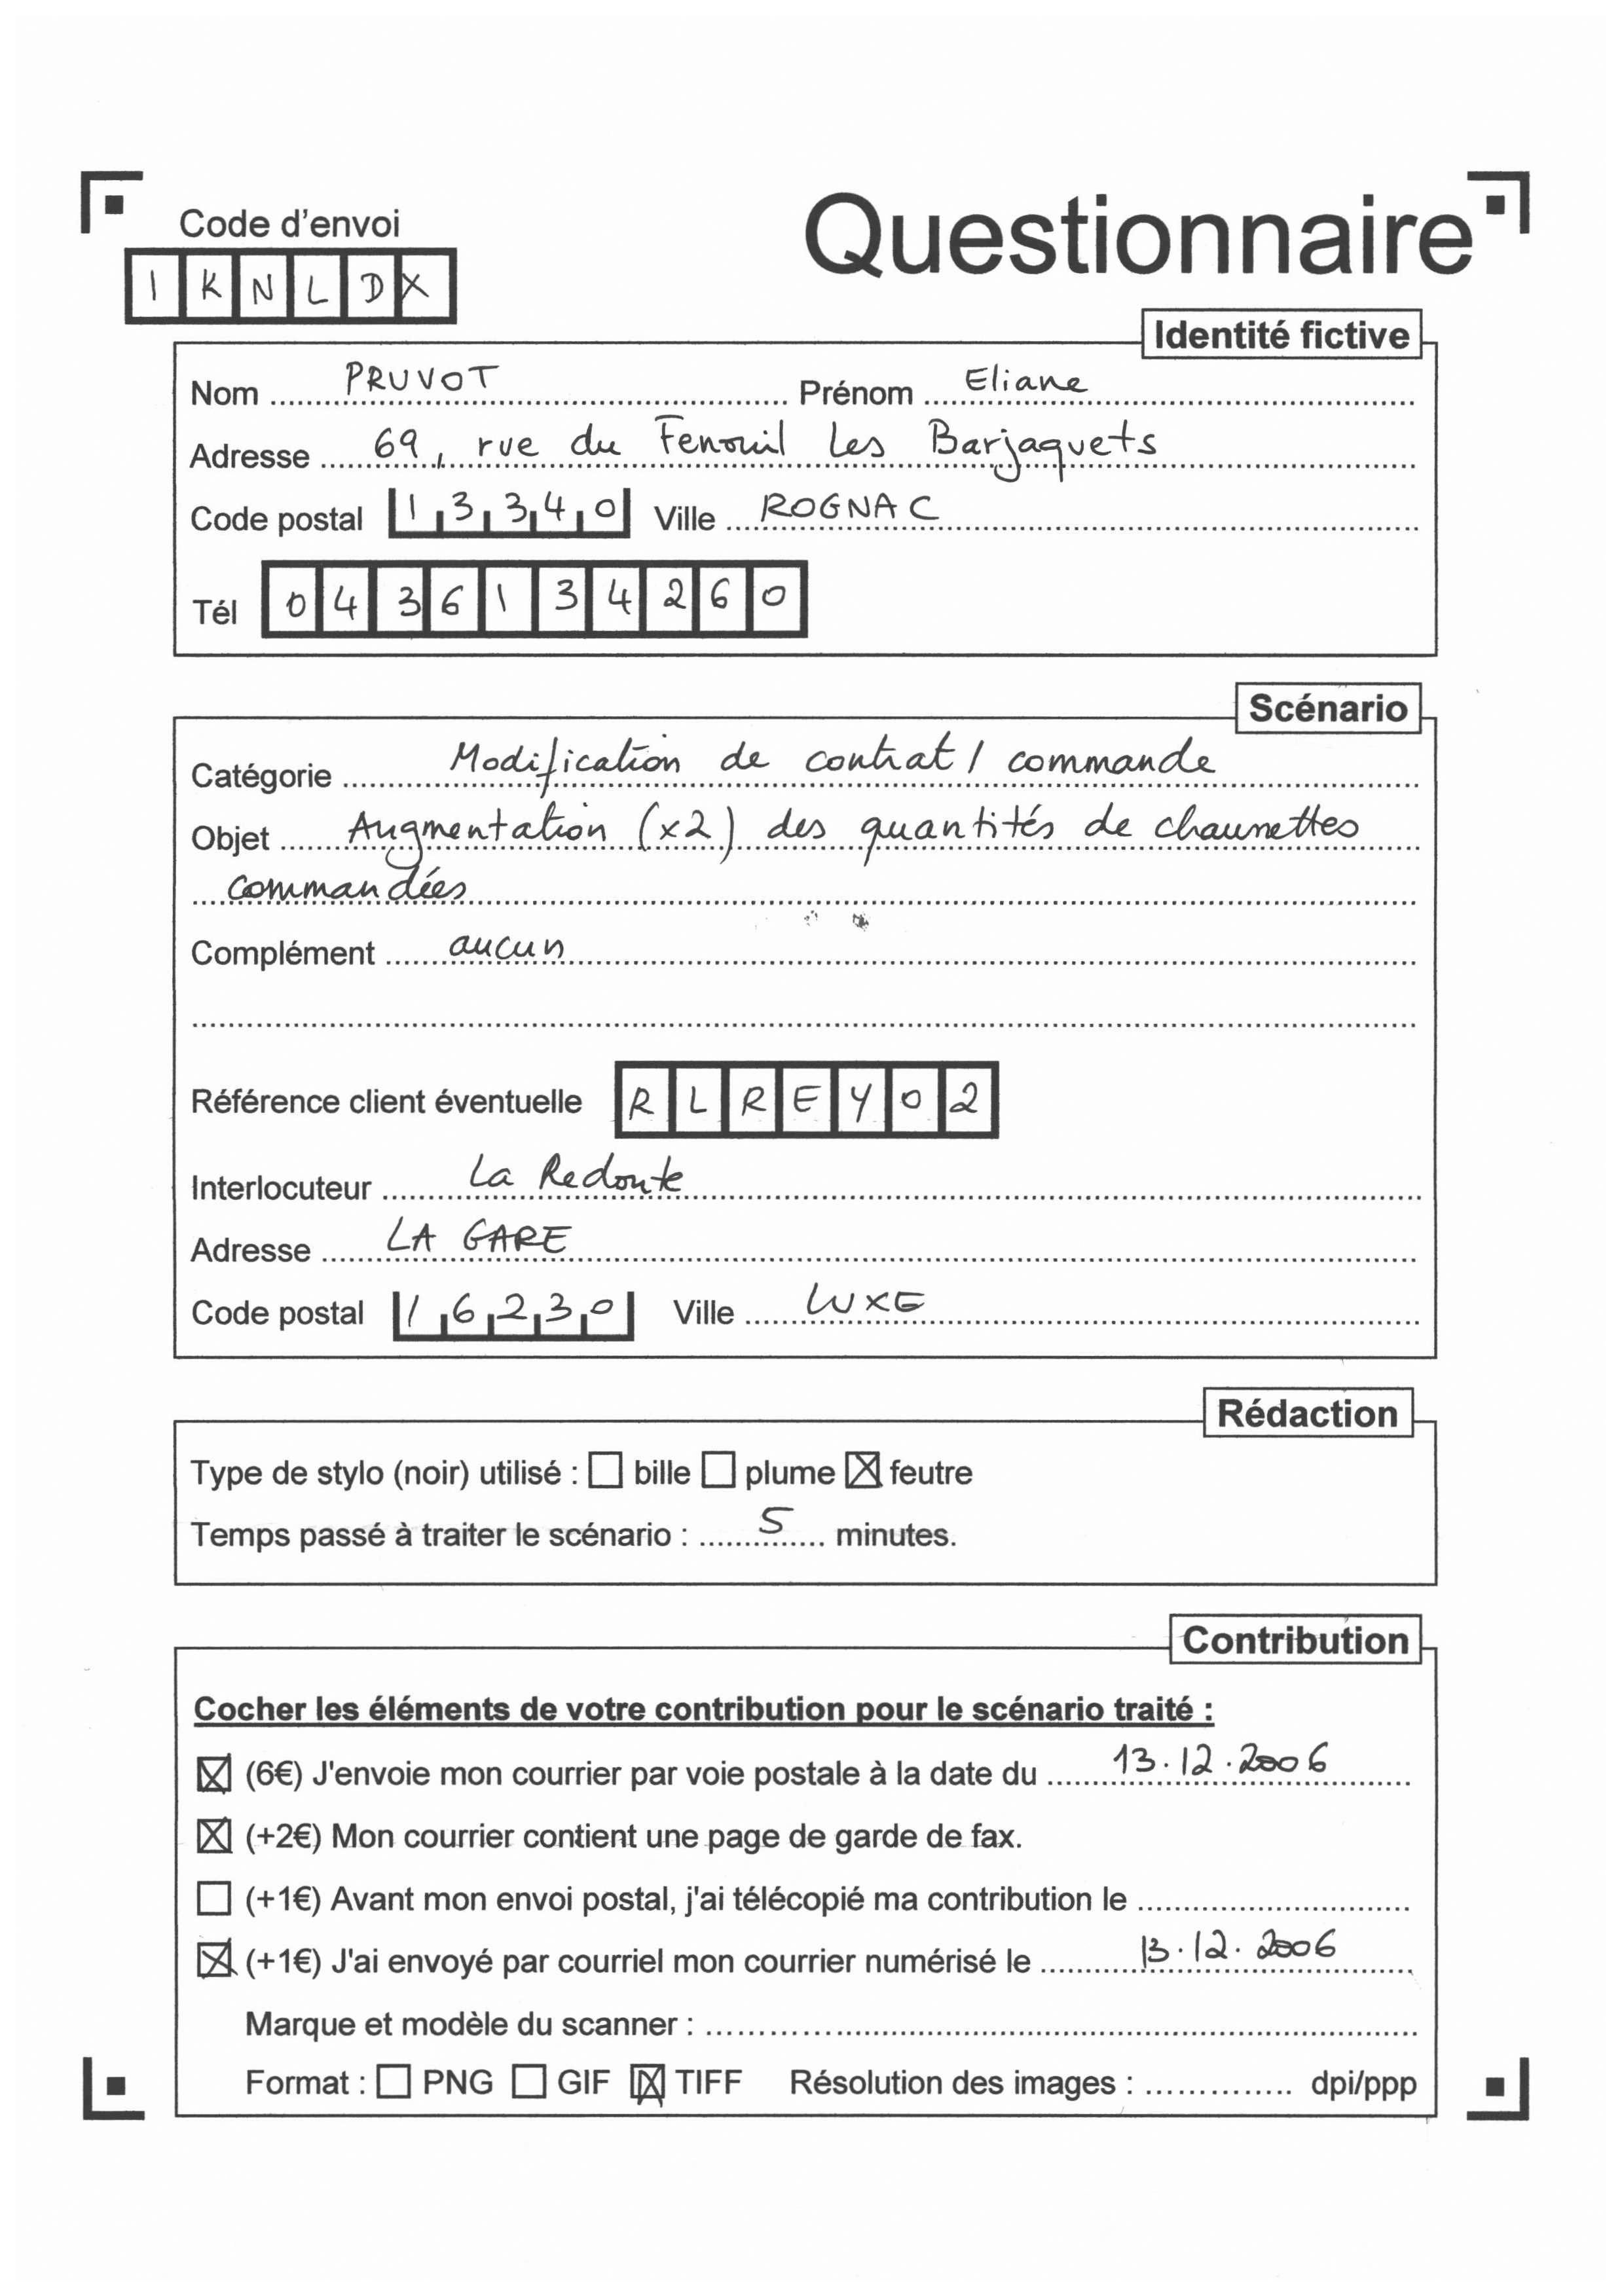 Code d'envoi
Questionnaire
I K N L D X
Identité fictive
Nom PRUVOT Prénom Eliane
Adresse 69, rue du Fenouil Les Barjaquets
Code postal 13340 Ville ROGNAC
Tél 0436134260
Scénario
Catégorie Modification de contrat / commande
Objet Augmentation (x2) des quantités de chaussettes
commandées
Complément aucun
Référence client éventuelle R L R E Y 0 2
Interlocuteur La Redoute
Adresse LA GARE
Code postal 16230 Ville LUXE
Rédaction
Type de stylo (noir) utilisé : ☐ bille ☐ plume ☒ feutre
Temps passé à traiter le scénario : 5 minutes.
Contribution
Cocher les éléments de votre contribution pour le scénario traité :
☒ (6€) J'envoie mon courrier par voie postale à la date du 13.12.2006
☒ (+2€) Mon courrier contient une page de garde de fax.
☐ (+1€) Avant mon envoi postal, j'ai télécopié ma contribution le
☒ (+1€) J'ai envoyé par courriel mon courrier numérisé le 13.12.2006
Marque et modèle du scanner :
Format : ☐ PNG ☐ GIF ☒ TIFF Résolution des images : dpi/ppp